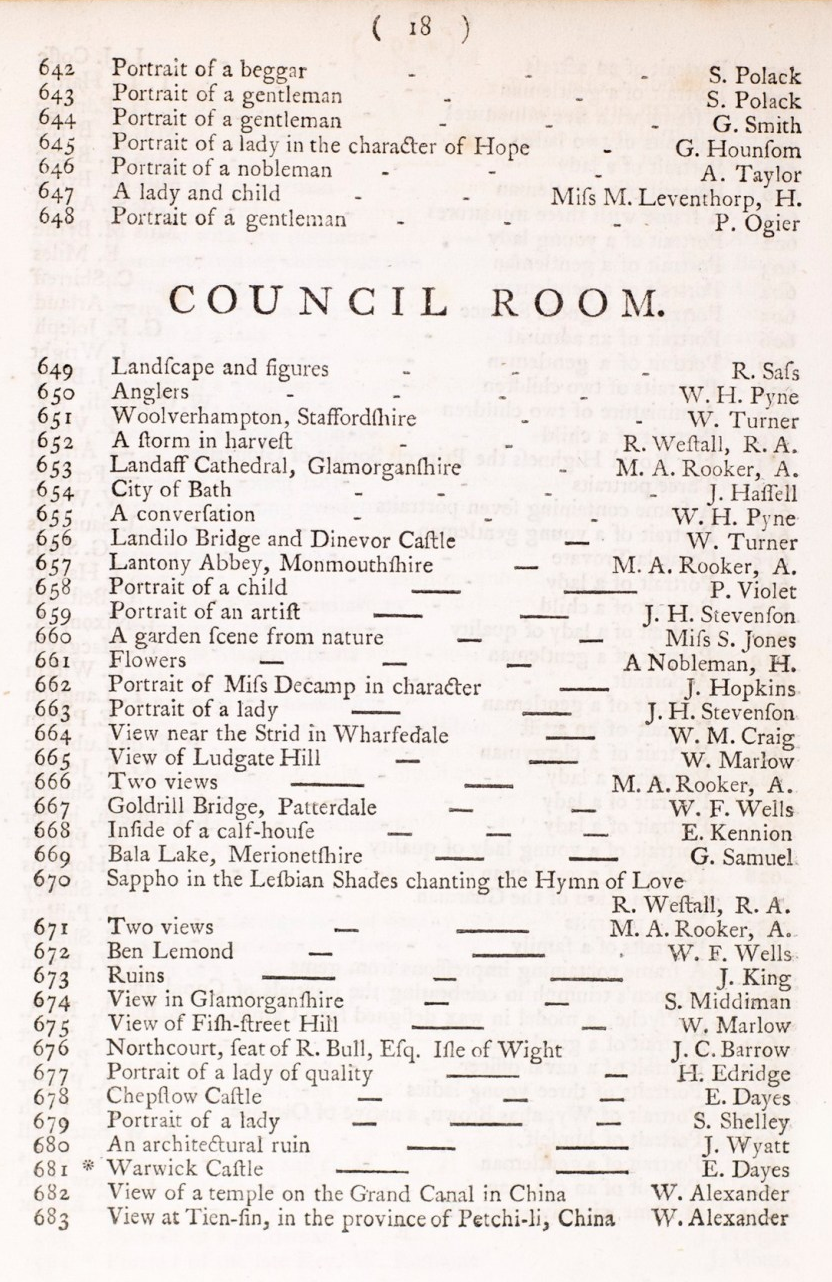 ( 18 )
642 Portrait of a beggar - - - S. Polack
643 Portrait of a gentleman - - - S. Polack
644 Portrait of a gentleman - - - G. Smith
645 Portrait of a lady in the character of Hope - G. Hounſom
646 Portrait of a nobleman - - - A. Taylor
647 A lady and child - - Miſs M. Leventhorp, H.
648 Portrait of a gentleman - - - P. Ogier
COUNCIL ROOM.
649 Landſcape and figures - - - R. Saſs
650 Anglers - - - - W. H. Pyne
651 Woolverhampton, Staffordſhire - - W. Turner
652 A ſtorm in harveſt - - R. Weſtall, R. A.
653 Landaff Cathedral, Glamorganſhire - M. A. Rooker, A.
654 City of Bath - - - - J. Haſſell
655 A converſation - - - W. H. Pyne
656 Landilo Bridge and Dinevor Caſtle — W. Turner
657 Lantony Abbey, Monmouthſhire — M. A. Rooker, A.
658 Portrait of a child — — P. Violet
659 Portrait of an artiſt — — J. H. Stevenſon
660 A garden ſcene from nature Miſs S. Jones
661 Flowers — — — A Nobleman, H.
662 Portrait of Miſs Decamp in character — J. Hopkins
663 Portrait of a lady — — J. H. Stevenſon
664 View near the Strid in Wharfedale — W. M. Craig
665 View of Ludgate Hill — — W. Marlow
666 Two views — — M. A. Rooker, A.
667 Goldrill Bridge, Patterdale — — W. F. Wells
668 Inſide of a calf-houſe — — E. Kennion
669 Bala Lake, Merionetſhire — — G. Samuel
670 Sappho in the Leſbian Shades chanting the Hymn of Love
R. Weſtall, R. A.
671 Two views — — M. A. Rooker, A.
672 Ben Lemond — — W. F. Wells
673 Ruins — — J. King
674 View in Glamorganſhire S. Middiman
675 View of Fiſh-ſtreet Hill — — W. Marlow
676 Northcourt, ſeat of R. Bull, Eſq. Iſle of Wight J. C. Barrow
677 Portrait of a lady of quality — — H. Edridge
678 Chepſtow Caſtle — — E. Dayes
679 Portrait of a lady — — — S. Shelley
680 An architectural ruin — — J. Wyatt
681 * Warwick Caſtle — — E. Dayes
682 View of a temple on the Grand Canal in China W. Alexander
683 View at Tien-ſin, in the province of Petchi-li, China W. Alexander